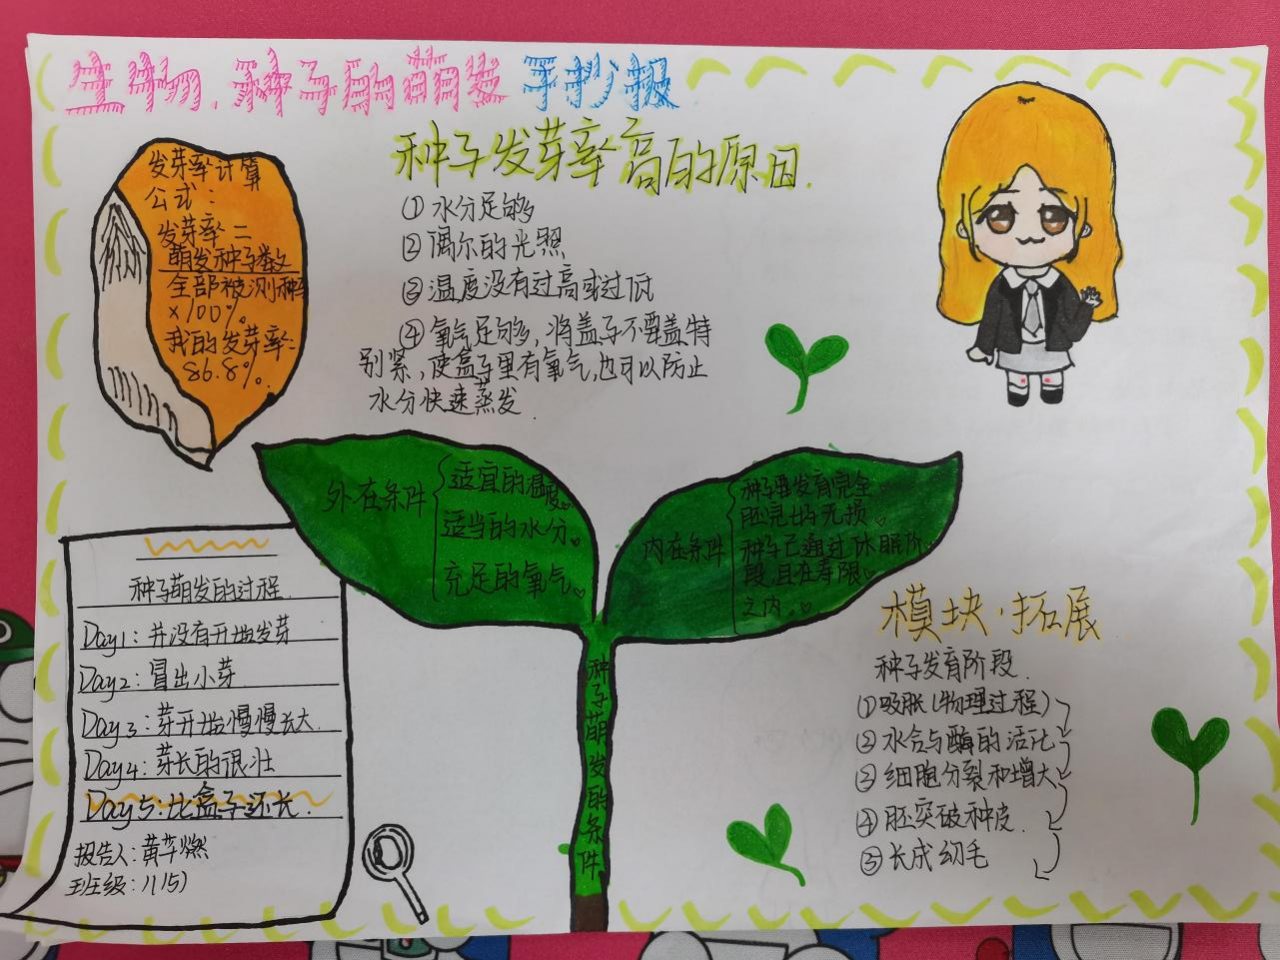 生物.种子的萌发手抄报
发芽率计算
公式:
发芽率=
萌发种子数
全部被测种
×100%
我的发芽率:
86.8%.
种子发芽率高的原因.
①水分足够
②偶尔的光照
③温度没有过高或过低
④氧气足够,将盖子不要盖特
别紧,使盒子里有氧气,也可以防止
水分快速蒸发.
外在条件
适宜的温度。
适当的水分。
充足的氧气。
内在条件
种子要发育完全
胚完好无损。
种子已通过休眠阶
段,且在寿限
之内。
种子萌发的条件
种子萌发的过程.
Day1:并没有开始发芽
Day2:冒出小芽
Day3:芽开始慢慢长大.
Day4:芽长的很壮
Day5:比盒子还长.
报告人:黄苹燃
班级:11(5)
模块·拓展
种子发育阶段.
①吸胀(物理过程)
②水合与酶的活化
③细胞分裂和增大
④胚突破种皮.
⑤长成幼毛